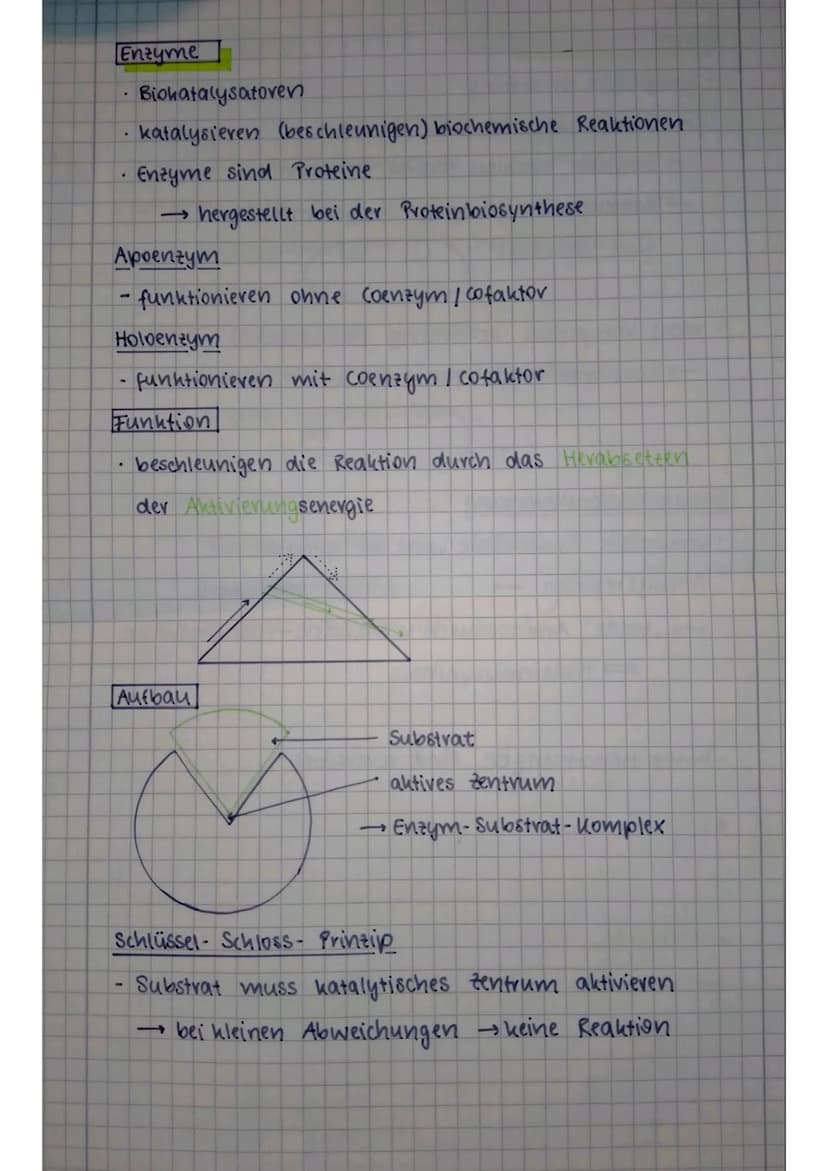 Enzyme
· Biokatalysatoren
· katalysieren (beschleunigen) biochemische Reaktionen
· Enzyme sind Proteine
→ hergestellt bei der Proteinbiosynthese
Apoenzym
- funktionieren ohne Coenzym / Cofaktor
Holoenzym
- funktionieren mit Coenzym / Cofaktor
Funktion
· beschleunigen die Reaktion durch das Herabsetzen
der Aktivierungsenergie
Aufbau
Substrat
aktives Zentrum
→ Enzym-Substrat-Komplex
Schlüssel-Schloss-Prinzip
- Substrat muss katalytisches Zentrum aktivieren
→ bei kleinen Abweichungen → keine Reaktion